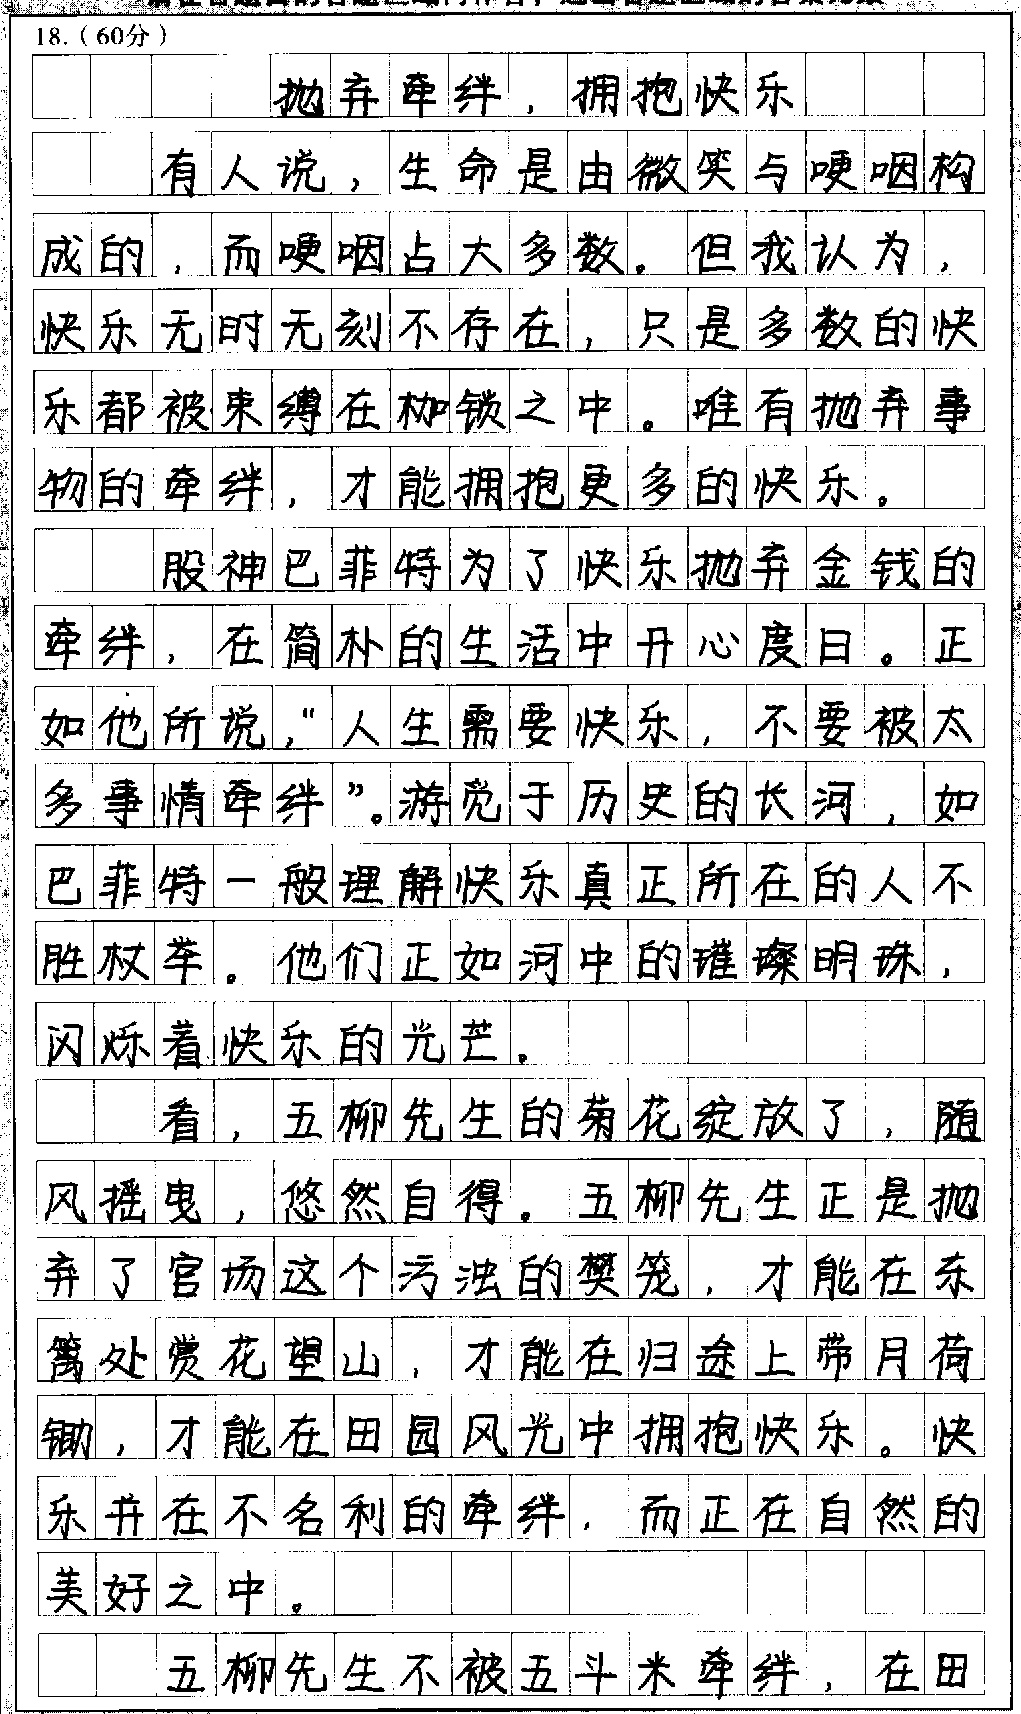 18.(60分)
抛弃牵绊,拥抱快乐
有人说,生命是由微笑与哽咽构
成的,而哽咽占大多数。但我认为,
快乐无时无刻不存在,只是多数的快
乐都被束缚在枷锁之中。唯有抛弃事
物的牵绊,才能拥抱更多的快乐。
股神巴菲特为了快乐抛弃金钱的
牵绊,在简朴的生活中开心度日。正
如他所说,“人生需要快乐,不要被太
多事情牵绊”。游览于历史的长河,如
巴菲特一般理解快乐真正所在的人不
胜枚举。他们正如河中的璀璨明珠,
闪烁着快乐的光芒。
看,五柳先生的菊花绽放了,随
风摇曳,悠然自得。五柳先生正是抛
弃了官场这个污浊的樊笼,才能在东
篱处赏花望山,才能在归途上带月荷
锄,才能在田园风光中拥抱快乐。快
乐并在不名利的牵绊,而正在自然的
美好之中。
五柳先生不被五斗米牵绊,在田